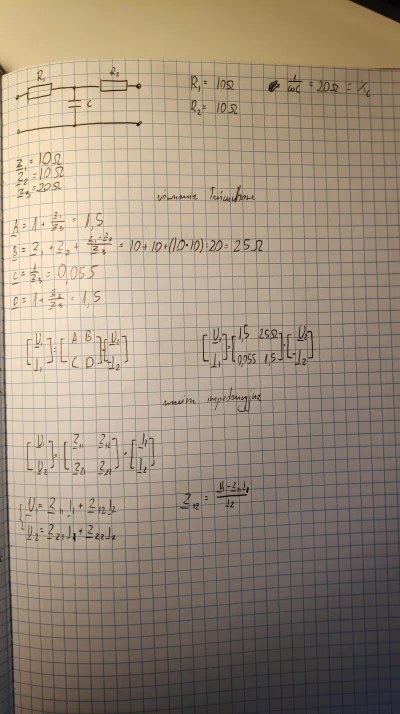 R₁ R₂ R₁ = 10Ω 1/ωC = 20Ω = X_C
C R₂ = 10Ω
Z₁ = 10Ω
Z₂ = 10Ω
Z₃ = 20Ω
równanie łańcuchowe
A = 1 + Z₁/Z₃ = 1,5
B = Z₁ + Z₂ + Z₁·Z₂/Z₃ = 10 + 10 + (10·10):20 = 25Ω
C = 1/Z₃ = 0,05S
D = 1 + Z₂/Z₃ = 1,5
[U₁ I₁] = [A B C D] · [U₂ I₂] [U₁ I₁] = [1,5 25Ω 0,05S 1,5] · [U₂ I₂]
impedancyjne
[U₁ U₂] = [Z₁₁ Z₁₂ Z₂₁ Z₂₂] · [I₁ I₂]
{ U₁ = Z₁₁ I₁ + Z₁₂ I₂ Z₁₂ = (U₁ - Z₁₁I₁)/I₂
U₂ = Z₂₁ I₁ + Z₂₂ I₂